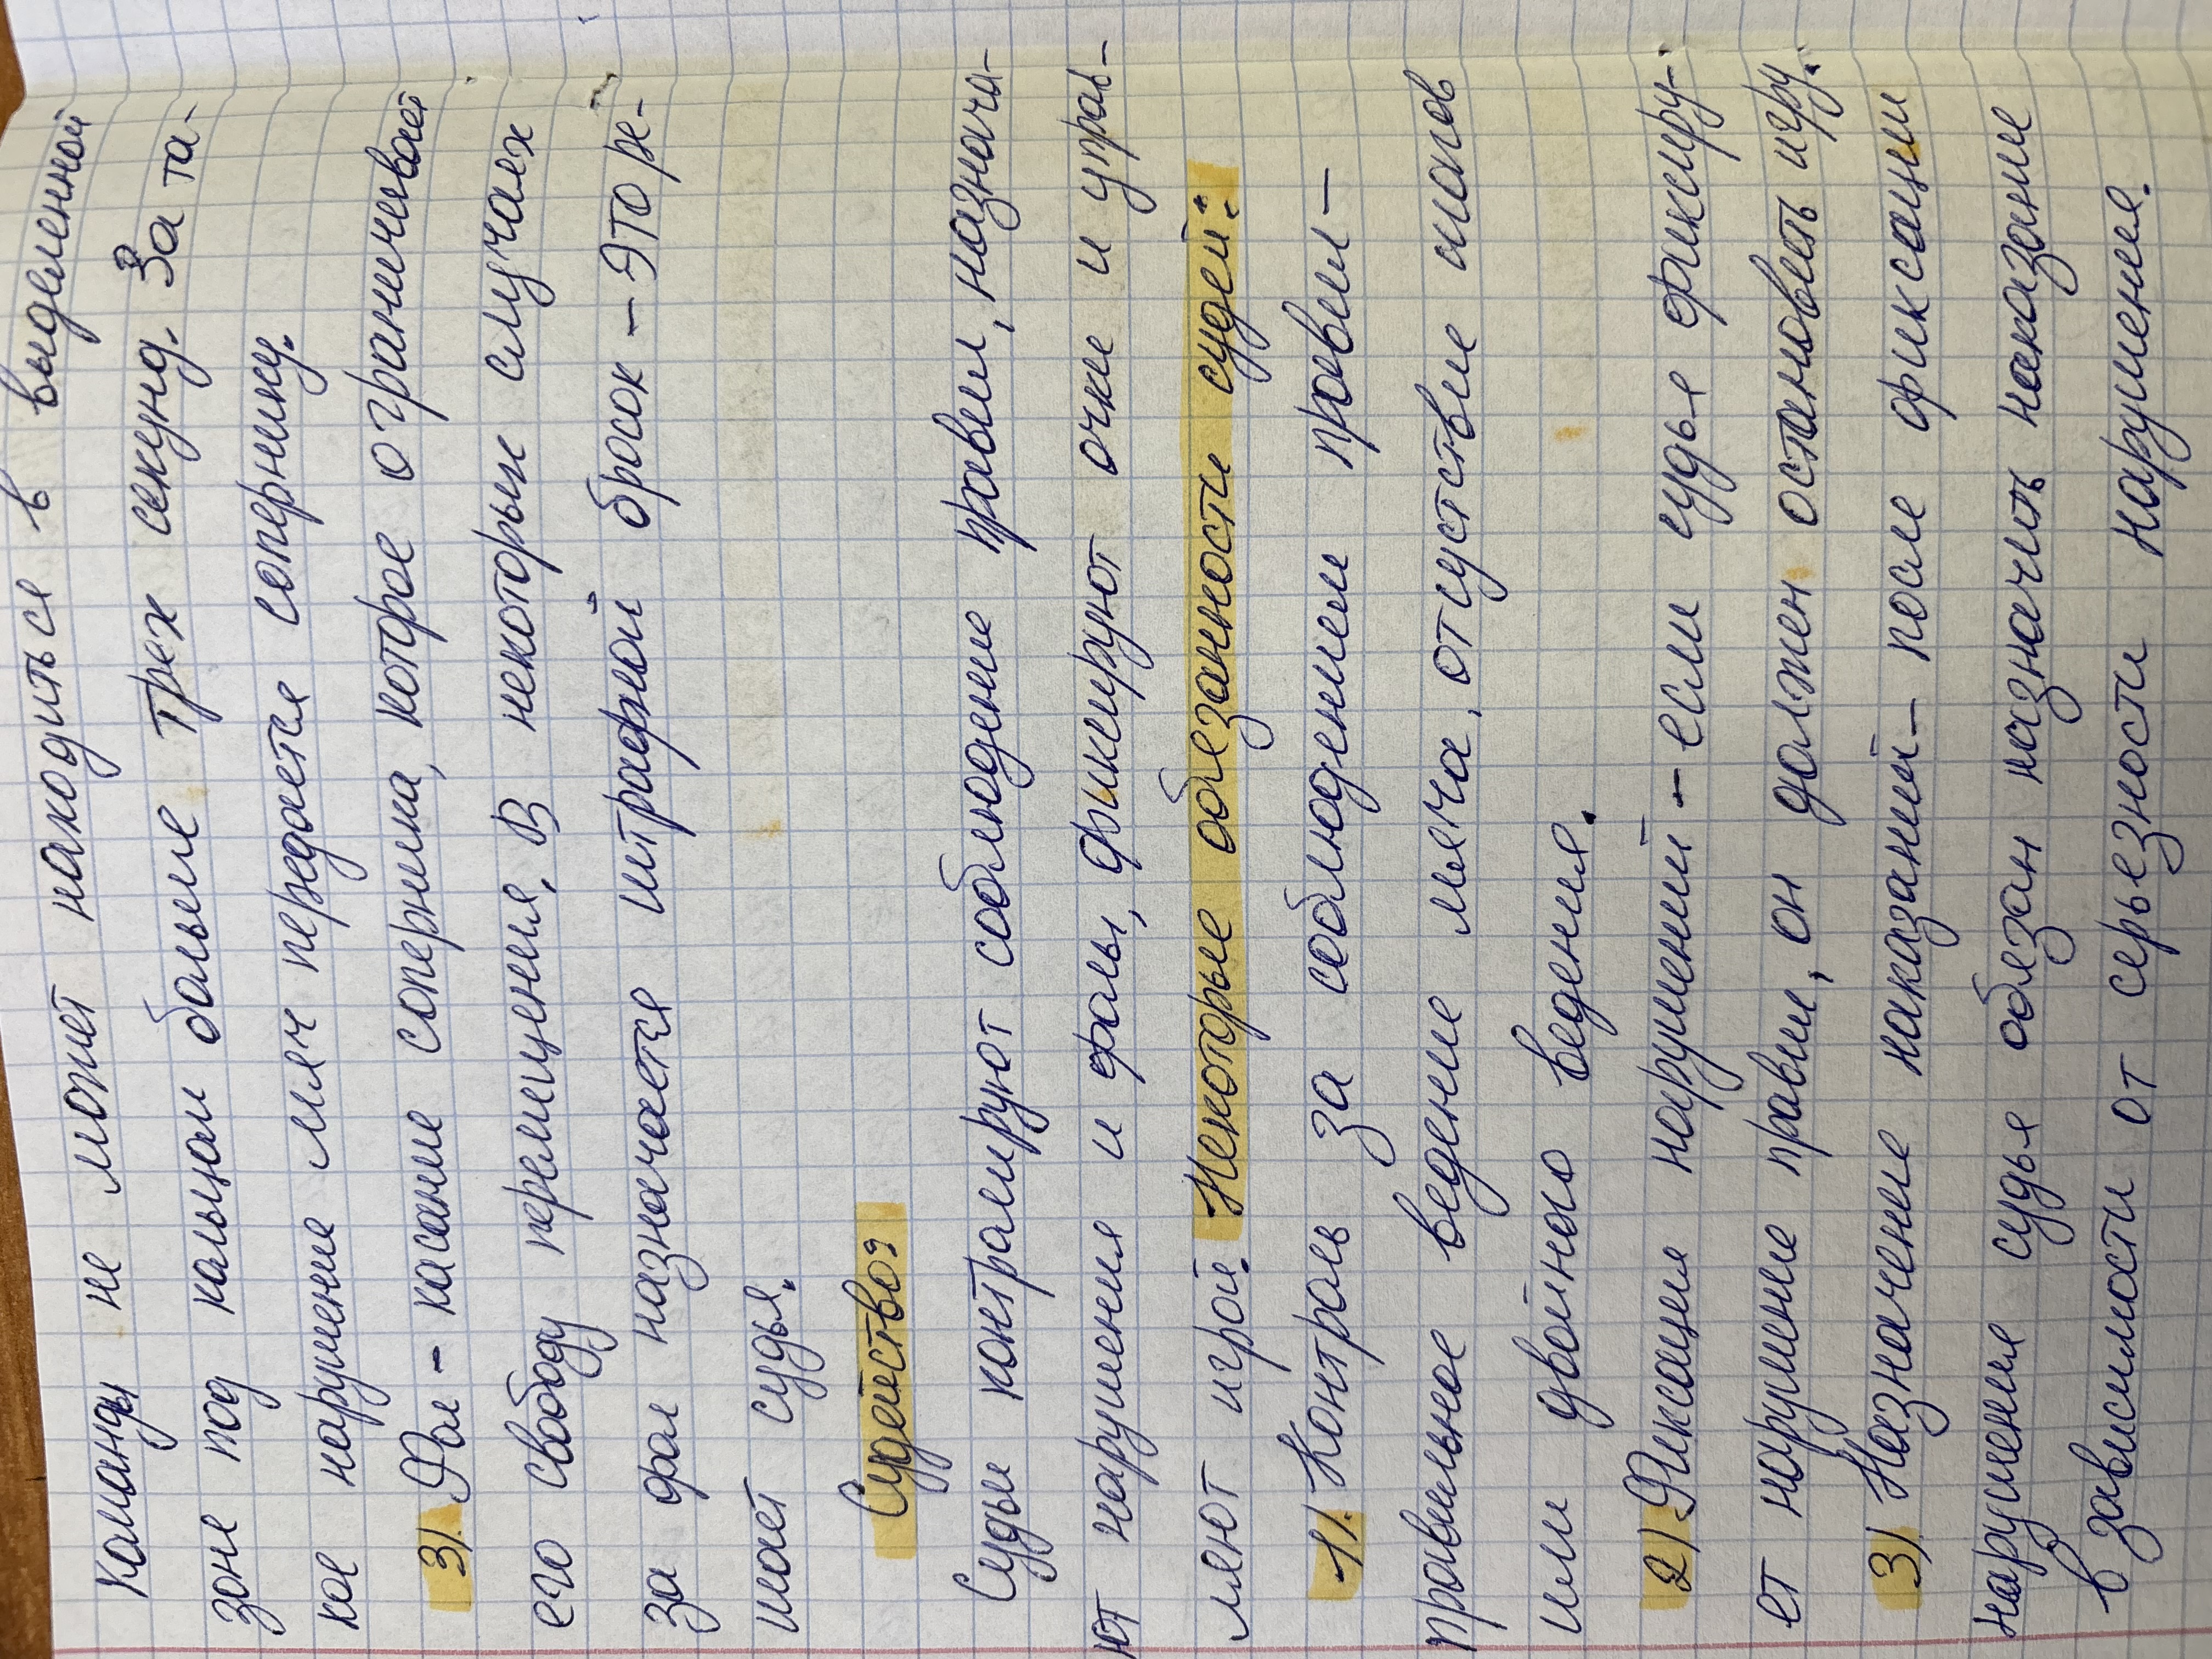 команды не может находиться в выделенной
зоне под кольцом больше трех секунд. За та-
кое нарушение мяч передается сопернику.
3). Фол - касание соперника, которое ограничевает
его свободу перемещения. В некоторых случаях
за фол назначается штрафной бросок - это ре-
шает судья.
Судейство:
Судьи контролируют соблюдение правил, назнача-
ют нарушения и фолы, фиксируют очки и управ-
ляют игрой. Некоторые обязанности судей:
1). Контроль за соблюдением правил -
правильное ведение мяча, отсуствие шагов
или двойного ведения.
2) Фиксация нарушений - если судья фиксиру-
ет нарушение правил, он должен остановить игру.
3) Назначение наказаний - после фиксации
нарушения судья обязан назначить наказание
в зависимости от серьезности нарушения.